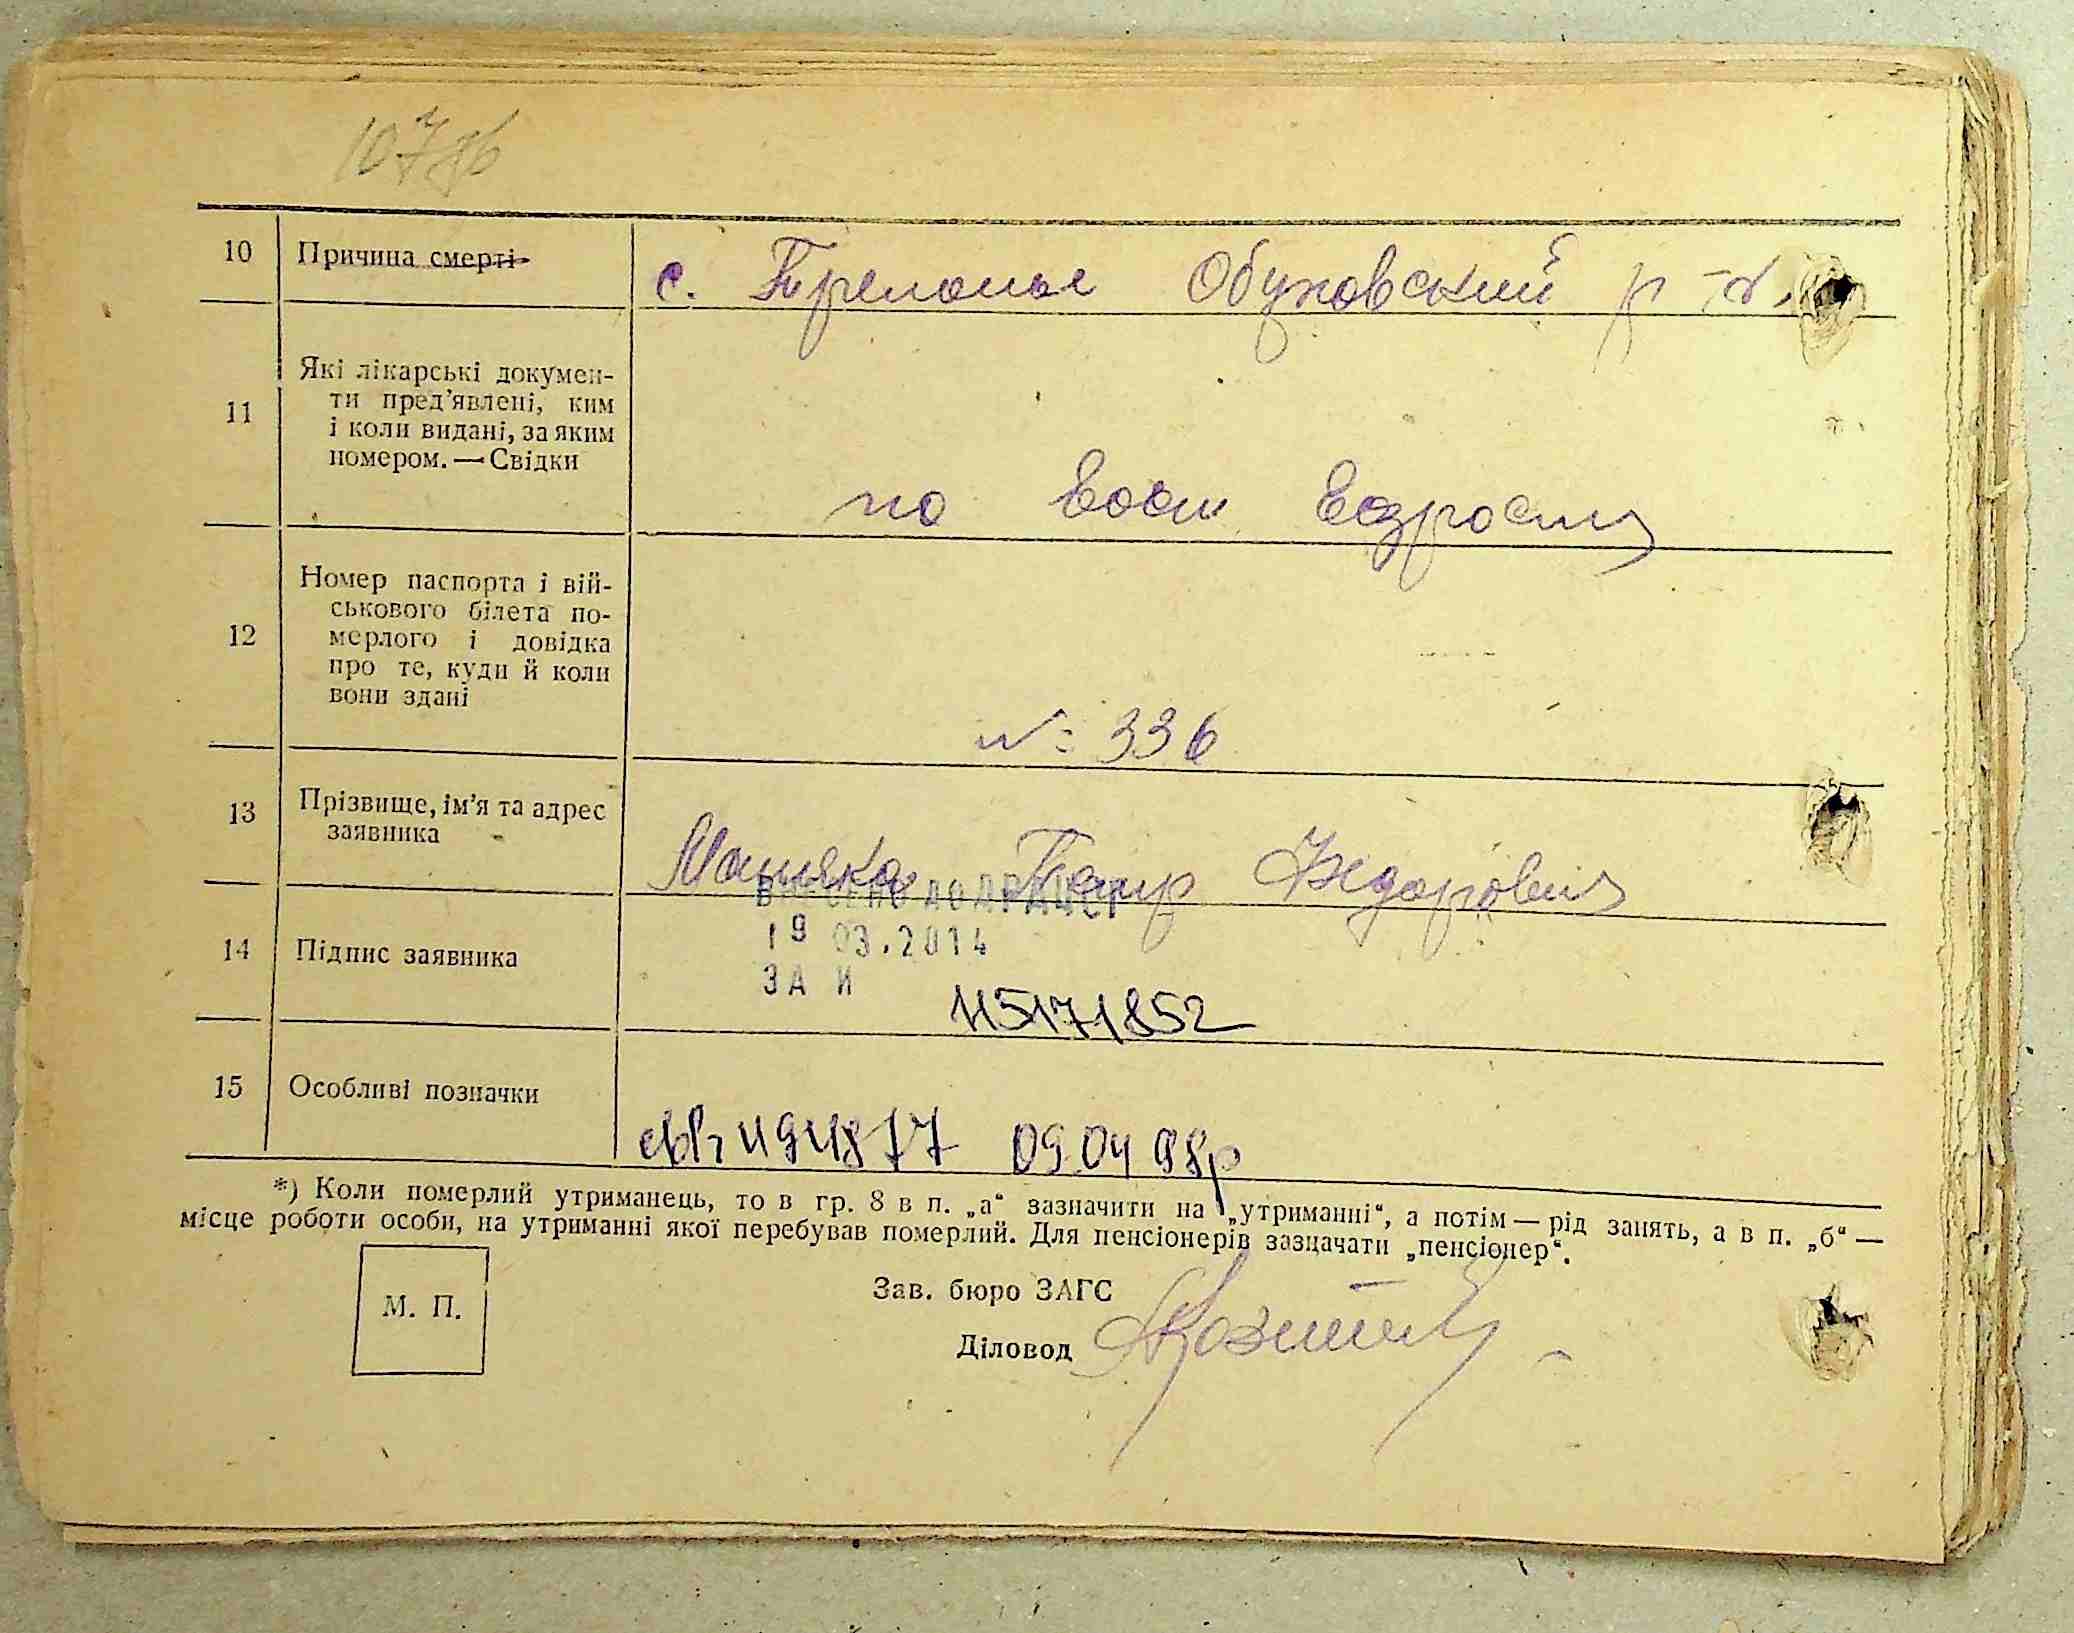 107зв
10 Причина смерті
с. Триполье Обуховский р-н.
11 Які лікарські докумен-
ти пред'явлені, ким
і коли видані, за яким
номером. — Свідки
по возрасту
12 Номер паспорта і вій-
ськового білета по-
мерлого і довідка
про те, куди й коли
вони здані
№ 336
13 Прізвище, ім'я та адрес
заявника
Федорович
ВНЕСЕНО ДО ДРАЦСГ
19 03.2014
14 Підпис заявника
ЗА №
115171852
15 Особливі позначки
494877 09.04 98р
*) Коли померлий утриманець, то в гр. 8 в п. „а“ зазначити на „утриманні“, а потім — рід занять, а в п. „б“ —
місце роботи особи, на утриманні якої перебував померлий. Для пенсіонерів зазначати „пенсіонер“.
М. П.
Зав. бюро ЗАГС
Діловод